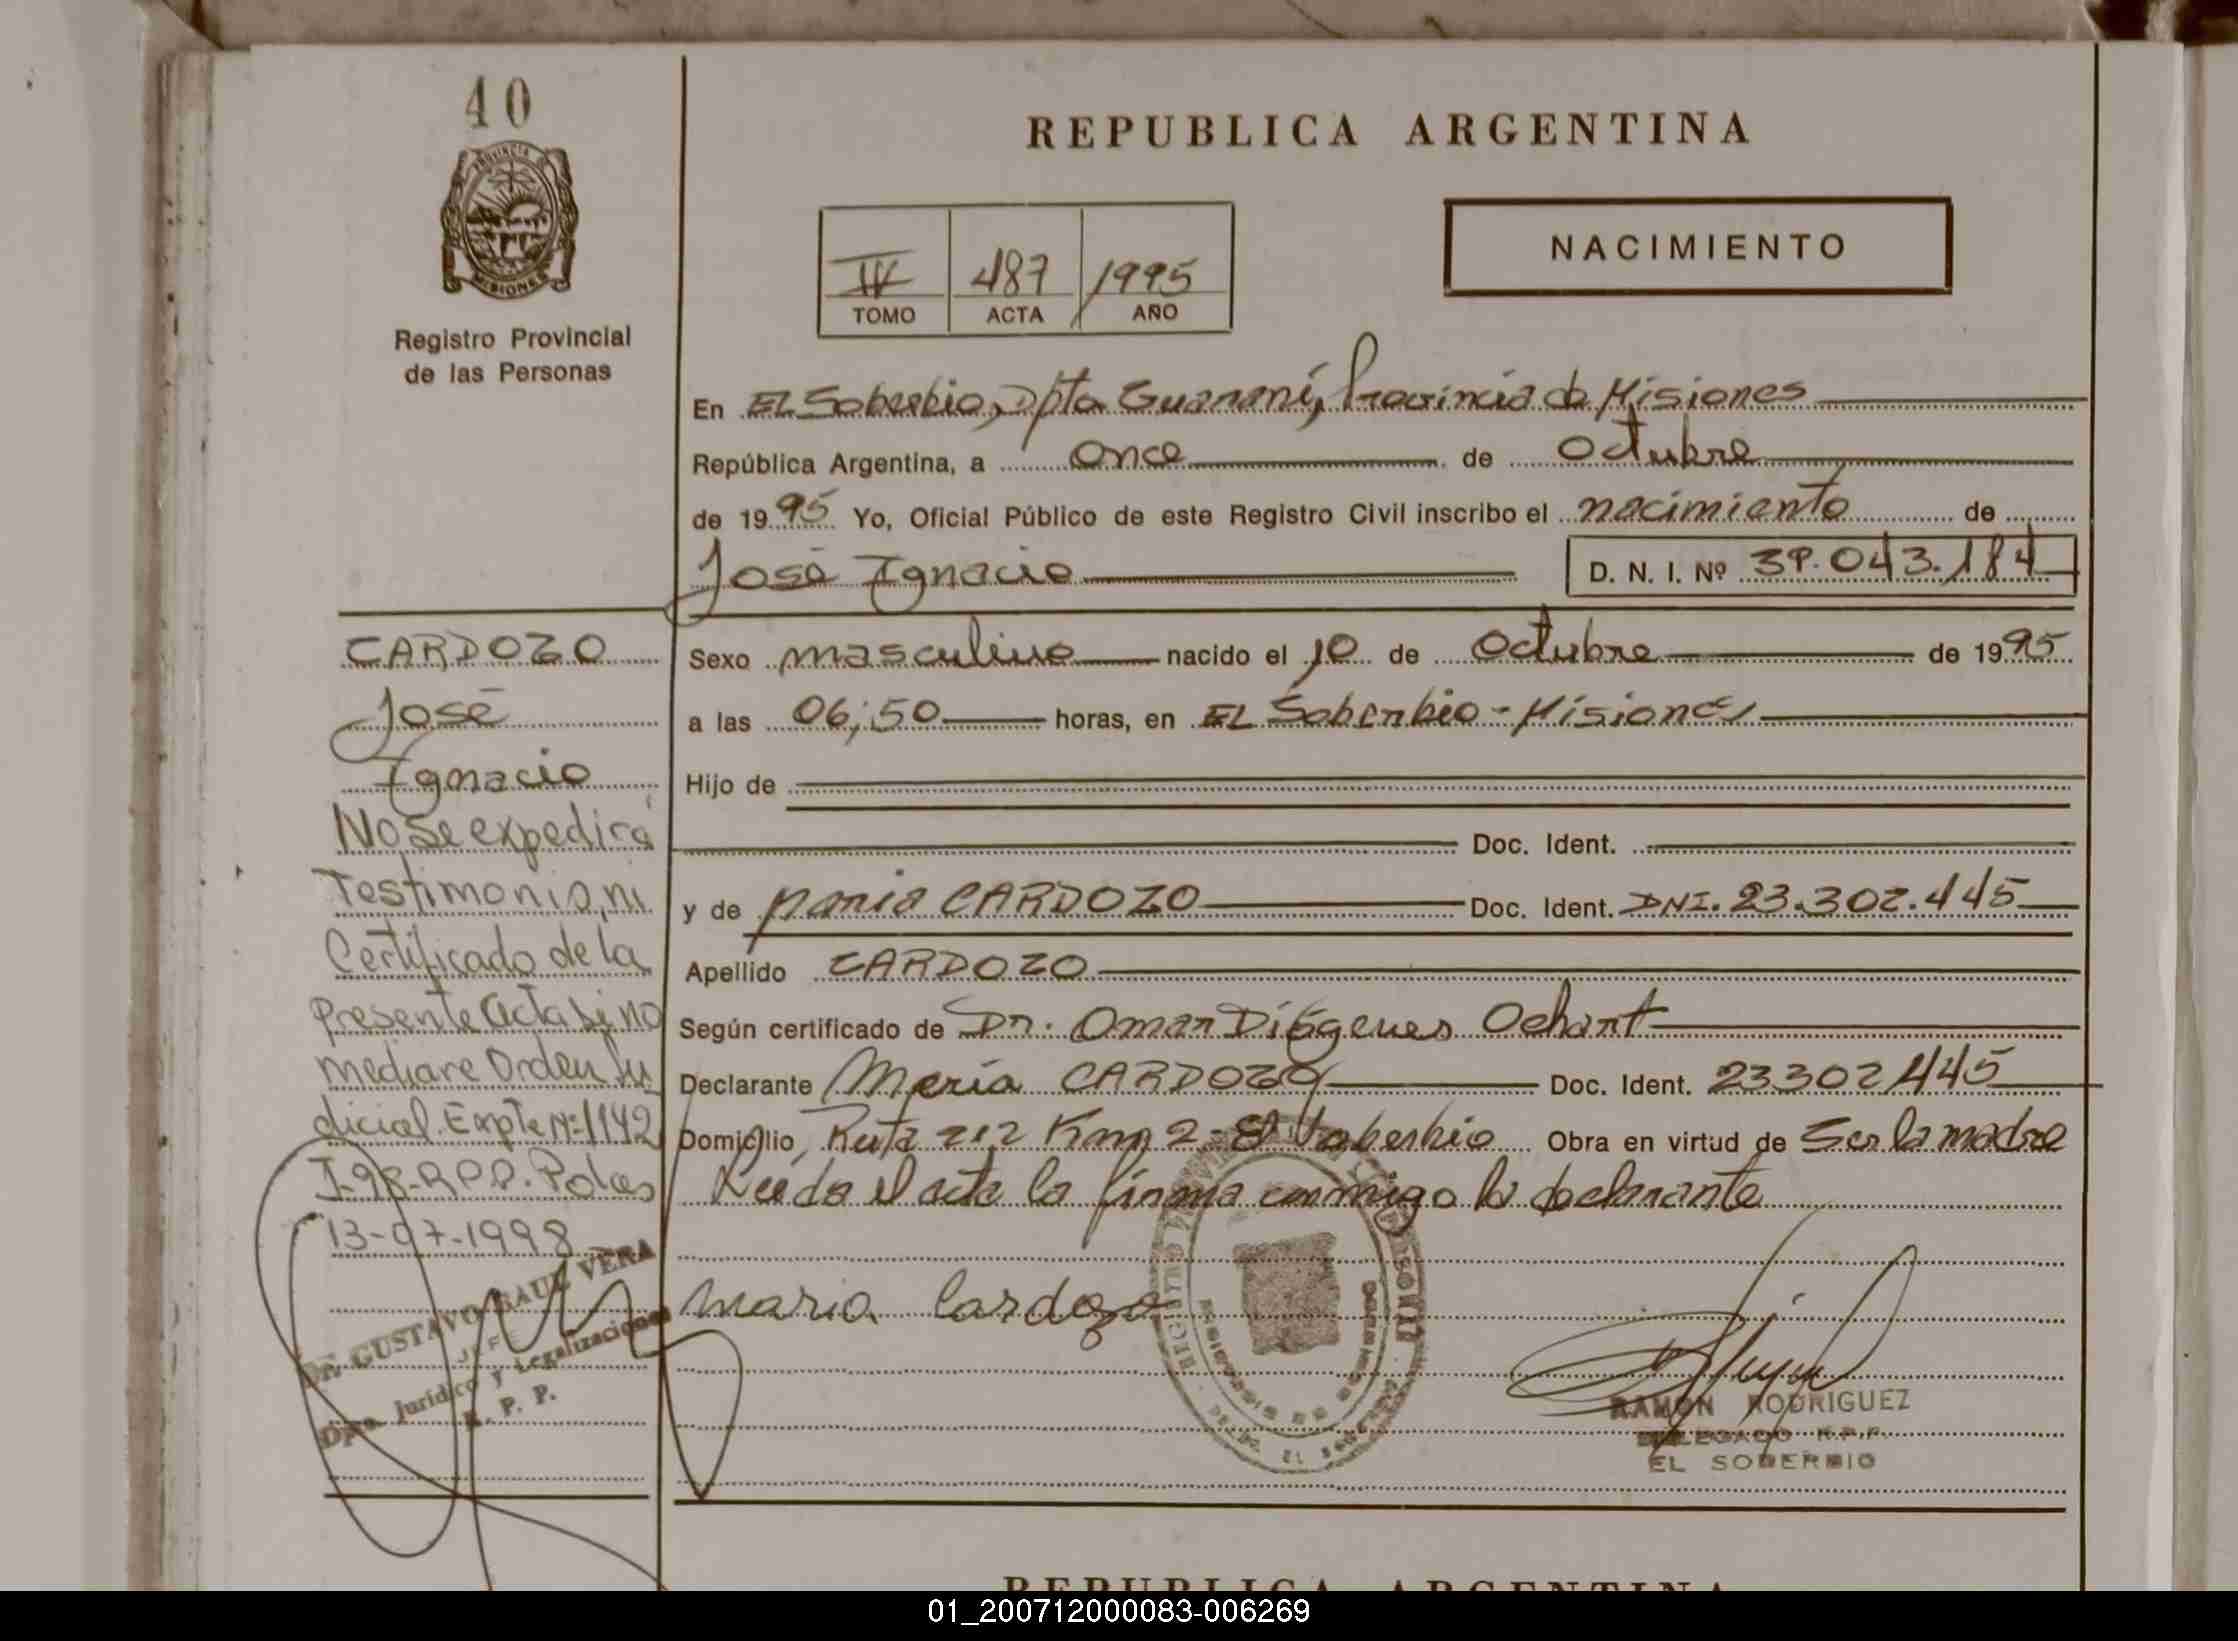 40
PROVINCIA DE
MISIONES
Registro Provincial
de las Personas
REPUBLICA ARGENTINA
NACIMIENTO
IV 487 1995
TOMO ACTA AÑO
En EL Soberbio, Dpto Guaraní, Provincia de Misiones
República Argentina, a once de Octubre
de 1995 Yo, Oficial Público de este Registro Civil inscribo el nacimiento de
José Ignacio D. N. I. Nº 39.043.184
Sexo masculino nacido el 10 de Octubre de 1995
a las 06;50 horas, en EL Soberbio - Misiones
Hijo de
Doc. Ident.
y de maria CARDOZO Doc. Ident. DNI. 23.302.445
Apellido CARDOZO
Según certificado de Dr. Omar Diógenes Ochart
Declarante Maria CARDOZO Doc. Ident. 23302445
Domicilio Ruta 212 Km 2 - El Soberbio Obra en virtud de Ser la madre
Leída el acta la firma conmigo la declarante
maria Cardozo
RAMON RODRIGUEZ
DELEGADO R.P.P.
EL SOBERBIO
CARDOZO
José
Ignacio
No se expedirá
Testimonio, ni
Certificado de la
presente Acta si no
mediare Orden Ju
dicial. Expte Nº 1142
I-98-R.P.P. Pdas
13-07-1998
DR. GUSTAVO RAUL VERA
JEFE
Dpto. Jurídico y Legalizaciones
R. P. P.
REPUBLICA ARGENTINA
01_200712000083-006269